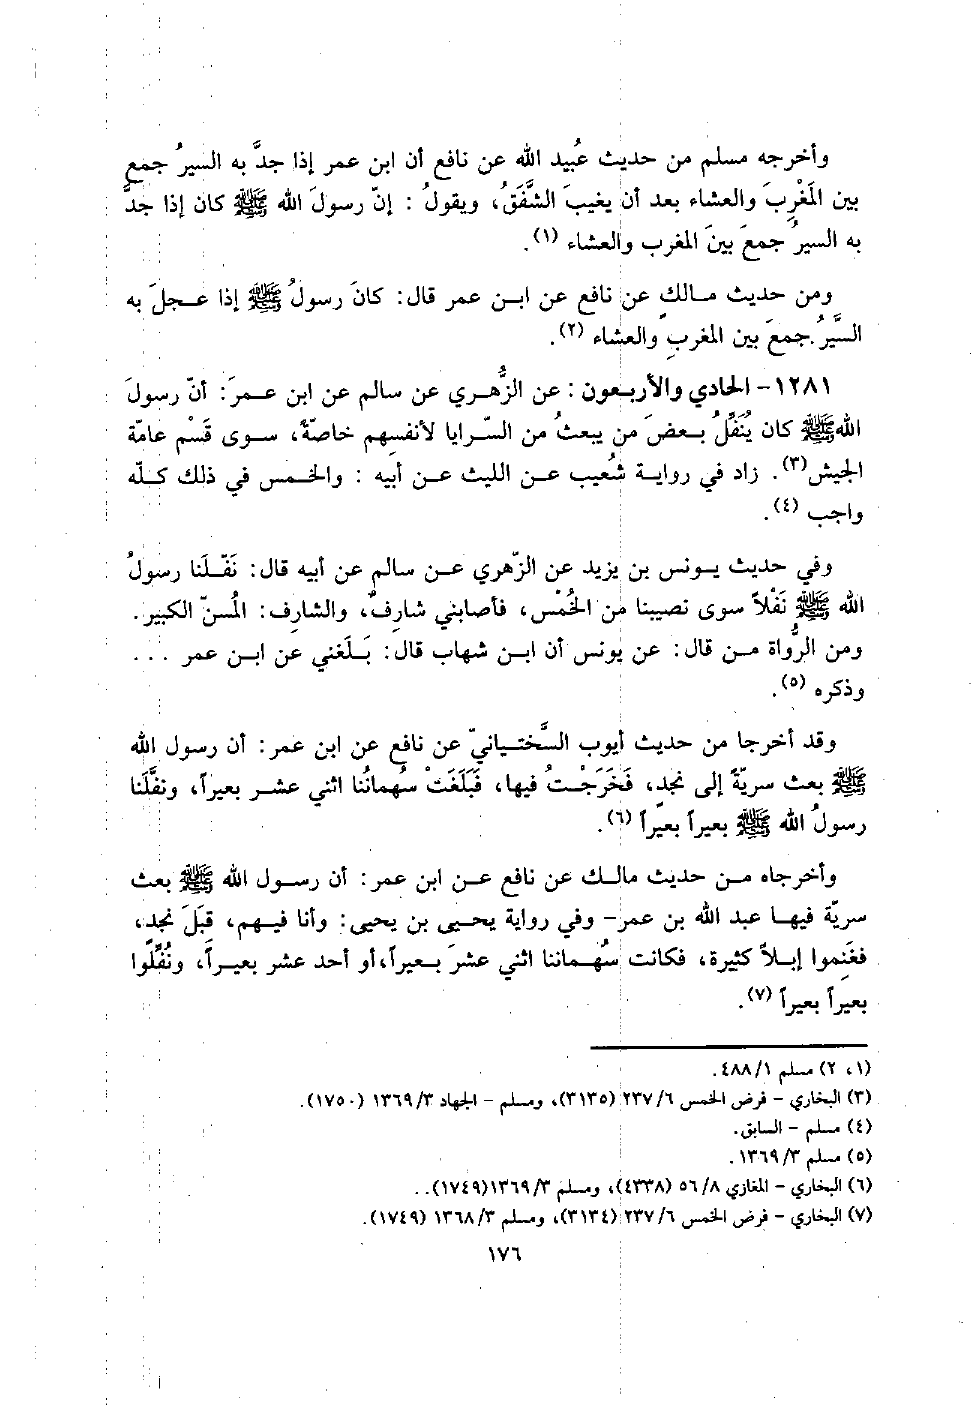 وأخرجه مسلم من حديث عُبيد الله عن نافع أن ابن عمر إذا جدَّ به السيرُ جمع
بين المَغْرِبَ والعشاء بعد أن يغيبَ الشَّفَقُ، ويقولُ : إنّ رسولَ الله ﷺ كان إذا جدَّ
به السيرُ جمعَ بينَ المغرب والعشاء (١).
ومن حديث مالكٍ عن نافع عن ابن عمر قال: كانَ رسولُ ﷺ إذا عجلَ به
السَّيرُ جمعَ بين المغربِ والعشاء (٢).
١٢٨١- الحادي والأربعون : عن الزُّهري عن سالم عن ابن عمرَ: أنّ رسولَ
اللهﷺ كان يُنَفِّلُ بعضَ من يبعثُ من السّرايا لأنفسِهم خاصةً، سوى قَسْم عامّة
الجيش(٣). زاد في رواية شُعيب عن الليث عن أبيه : والخمس في ذلك كلّه
واجب (٤).
وفي حديث يونس بن يزيد عن الزّهري عن سالم عن أبيه قال: نَفّلَنا رسولُ
الله ﷺ نَفْلاً سوى نصيبنا من الخُمْس، فأصابني شارِفٌ، والشارِف: المُسنّ الكبير.
ومن الرُّواة من قال: عن يونس أن ابن شهاب قال: بَلَغني عن ابن عمر ...
وذكره (٥).
وقد أخرجا من حديث أيوب السَّختيانيّ عن نافع عن ابن عمر: أن رسول الله
ﷺ بعث سريّةً إلى نجدٍ، فَخَرَجْتُ فيها، فَبَلَغَتْ سُهماننُا اثني عشر بعيراً، ونفَّلَنا
رسولُ الله ﷺ بعيراً بعيراً (٦).
وأخرجاه من حديث مالك عن نافع عن ابن عمر: أن رسول الله ﷺ بعث
سريّة فيها عبد الله بن عمر- وفي رواية يحيى بن يحيى: وأنا فيهم، قبَلَ نجد،
فغَنِموا إبلاً كثيرة، فكانت سُهماننا اثني عشرَ بعيراً،أو أحد عشر بعيراً، ونُفِّلوا
بعيراً بعيراً (٧).
(١، ٢) مسلم ٤٨٨/١.
(٣) البخاري - فرض الخمس ٢٣٧/٦ (٣١٣٥)، ومسلم - الجهاد ١٣٦٩/٣ (١٧٥٠).
(٤) مسلم - السابق.
(٥) مسلم ١٣٦٩/٣.
(٦) البخاري - المغازي ٥٦/٨ (٤٣٣٨)، ومسلم ١٣٦٩/٣(١٧٤٩)..
(٧) البخاري - فرض الخمس ٢٣٧/٦ (٣١٣٤)، ومسلم ١٣٦٨/٣ (١٧٤٩).
١٧٦